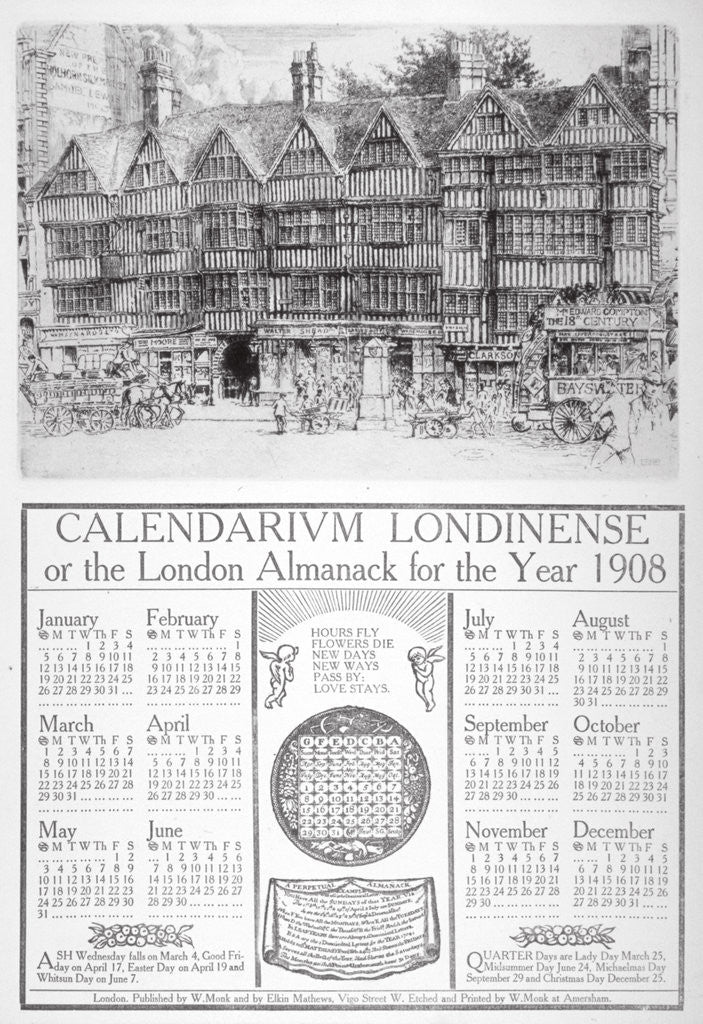 NEW PRE
HOLBORN SILK MARKET
SAMUEL LEWIS
MOORE
WALTER
CLARKSON
Mr EDWARD COMPTON
THE 18th CENTURY
BAYSWATER
CALENDARIVM LONDINENSE
or the London Almanack for the Year 1908
January
M T W Th F S
... ... ... 1 2 3 4
5 6 7 8 9 10 11
12 13 14 15 16 17 18
19 20 21 22 23 24 25
26 27 28 29 30 31 ...
February
M T W Th F S
... ... ... ... ... ... 1
2 3 4 5 6 7 8
9 10 11 12 13 14 15
16 17 18 19 20 21 22
23 24 25 26 27 28 29
March
M T W Th F S
1 2 3 4 5 6 7
8 9 10 11 12 13 14
15 16 17 18 19 20 21
22 23 24 25 26 27 28
29 30 31 ... ... ... ...
April
M T W Th F S
... ... ... 1 2 3 4
5 6 7 8 9 10 11
12 13 14 15 16 17 18
19 20 21 22 23 24 25
26 27 28 29 30 ... ...
May
M T W Th F S
... ... ... ... ... 1 2
3 4 5 6 7 8 9
10 11 12 13 14 15 16
17 18 19 20 21 22 23
24 25 26 27 28 29 30
31 ... ... ... ... ... ...
June
M T W Th F S
... 1 2 3 4 5 6
7 8 9 10 11 12 13
14 15 16 17 18 19 20
21 22 23 24 25 26 27
28 29 30 ... ... ... ...
ASH Wednesday falls on March 4, Good Fri-
day on April 17, Easter Day on April 19 and
Whitsun Day on June 7.
HOURS FLY
FLOWERS DIE
NEW DAYS
NEW WAYS
PASS BY:
LOVE STAYS.
G F E D C B A
1 2 3 4 5 6 7
8 9 10 11 12 13 14
15 16 17 18 19 20 21
22 23 24 25 26 27 28
29 30 31
A PERPETUAL ALMANACK
EXAMPLE
July
M T W Th F S
... ... ... 1 2 3 4
5 6 7 8 9 10 11
12 13 14 15 16 17 18
19 20 21 22 23 24 25
26 27 28 29 30 31 ...
August
M T W Th F S
... ... ... ... ... ... 1
2 3 4 5 6 7 8
9 10 11 12 13 14 15
16 17 18 19 20 21 22
23 24 25 26 27 28 29
30 31 ... ... ... ... ...
September
M T W Th F S
... ... 1 2 3 4 5
6 7 8 9 10 11 12
13 14 15 16 17 18 19
20 21 22 23 24 25 26
27 28 29 30 ... ... ...
October
M T W Th F S
... ... ... ... 1 2 3
4 5 6 7 8 9 10
11 12 13 14 15 16 17
18 19 20 21 22 23 24
25 26 27 28 29 30 31
November
M T W Th F S
1 2 3 4 5 6 7
8 9 10 11 12 13 14
15 16 17 18 19 20 21
22 23 24 25 26 27 28
29 30 ... ... ... ... ...
December
M T W Th F S
... ... 1 2 3 4 5
6 7 8 9 10 11 12
13 14 15 16 17 18 19
20 21 22 23 24 25 26
27 28 29 30 31 ... ...
QUARTER Days are Lady Day March 25,
Midsummer Day June 24, Michaelmas Day
September 29 and Christmas Day December 25.
London. Published by W. Monk and by Elkin Mathews, Vigo Street W. Etched and Printed by W. Monk at Amersham.